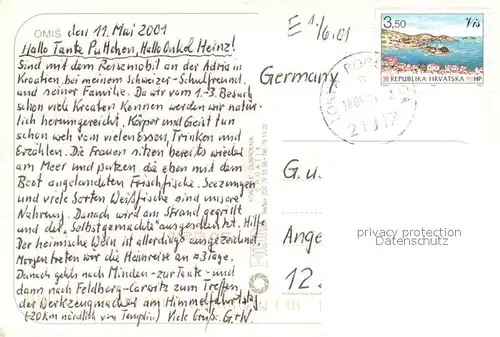 OMIŠ den 11. Mai 2001
Hallo Tante Puttchen, Hallo Onkel Heinz!
Sind mit dem Reisemobil an der Adria in
Kroatien bei meinem Schweizer-Schulfreund
und seiner Familie. Da wir vom 1.-3. Besuch
schon viele Kroaten kennen werden wir natür-
lich herumgereicht. Körper und Geist tun
schon weh vom vielen Essen, Trinken und
Erzählen. Die Frauen sitzen bereits wieder
am Meer und putzen die eben mit dem
Boot angelandeten Frischfische. Seezungen
und viele Sorten Weißfische sind unsere
Nahrung. Danach wird am Strand gegrillt
und der "Selbstgemachte" ausgeschenkt. Hilfe
Der heimische Wein ist allerdings ausgezeichnet.
Morgen treten wir die Heimreise an ≠ 3 Tage.
Danach gehts nach Minden - zur Tante - und
dann nach Feldberg-Carwitz zum Treffen
der Werkzeugmacher am Himmelfahrtstag
(~20 km nördlich von Templin) Viele Grüße G.+W.
E 1/6.01
Vis
3,50
REPUBLIKA HRVATSKA HP
Germany
21317
G. u.
Ange
12.
privater Ansichtskarten